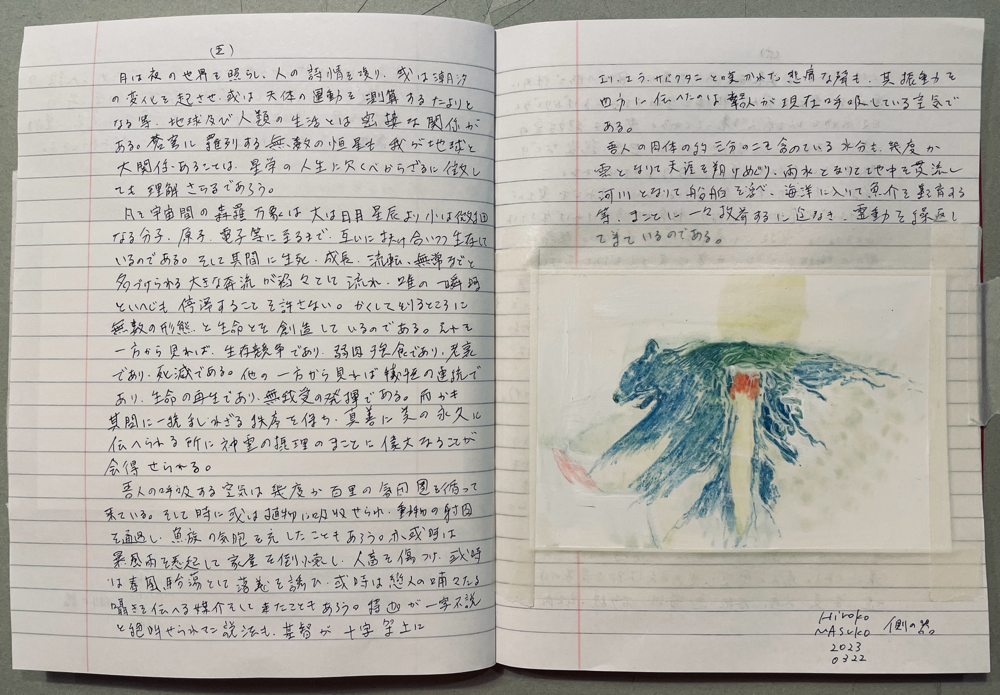 (五)
月は夜の世界を照らし、人の詩情を唆り、或は潮汐
の変化を起させ、或は天体の運動を測算するたよりと
なる等、地球及び人類の生活とは密接な関係が
ある。蒼穹に羅列する無数の恒星も我が地球と
大関係あることは、星学の人生に欠くべからざるに徴し
ても理解さるるであろう。
凡そ宇宙間の森羅万象は大は日月星辰より小は微細
なる分子、原子、電子等に至るまで、互いに扶け合いつつ生存して
いるのである。そして其間に生死、成長、流転、無常などと
名づけられる大きな奔流が滔々として流れ、唯の一瞬時
といへども停滞することを許さない。かくして到るところに
無数の形態と生命とを創造しているのである。それを
一方から見れば、生存競争であり、弱肉強食であり、老衰
であり、死滅である。他の一方から見れば犠牲の連続で
あり、生命の再生であり、無我愛の発揮である。而かも
其間に一糸乱れざる秩序を保ち、真善に美の永久に
伝へられる所に神霊の摂理のまことに偉大なることが
会得せられる。
吾人の呼吸する空気は幾度か百里の雰囲圏を循って
来ている。そして時に或は植物に吸収せられ、動物の肺肉
を通過し、魚族の気胞を充したこともあろう。亦或時は
暴風雨を惹起して家屋を倒壊し、人畜を傷つけ、或時
は春風駘蕩として落花を誘ひ、或時は恋人の喃々たる
囁きを伝へる媒介をして来たこともあろう。釈迦が一字不説
と絶叫せられた説法も、基督が十字架上に
エリ、エリ、サバクタニと嘆かれた悲痛な聲も、其振動を
四方に伝へたのは我人が現在呼吸している空気で
ある。
吾人の肉体の約三分の二を含めている水分も、幾度か
雲となりて天涯を翔けめぐり、雨水となりて地中を貫流し
河川となりて船舶を浮べ、海洋に入りて魚介を養育する
等、まことに一々枚挙するに遑なき運動を繰返し
て来ているのである。
Hiroko
MASuko
2023
0322
側の器。